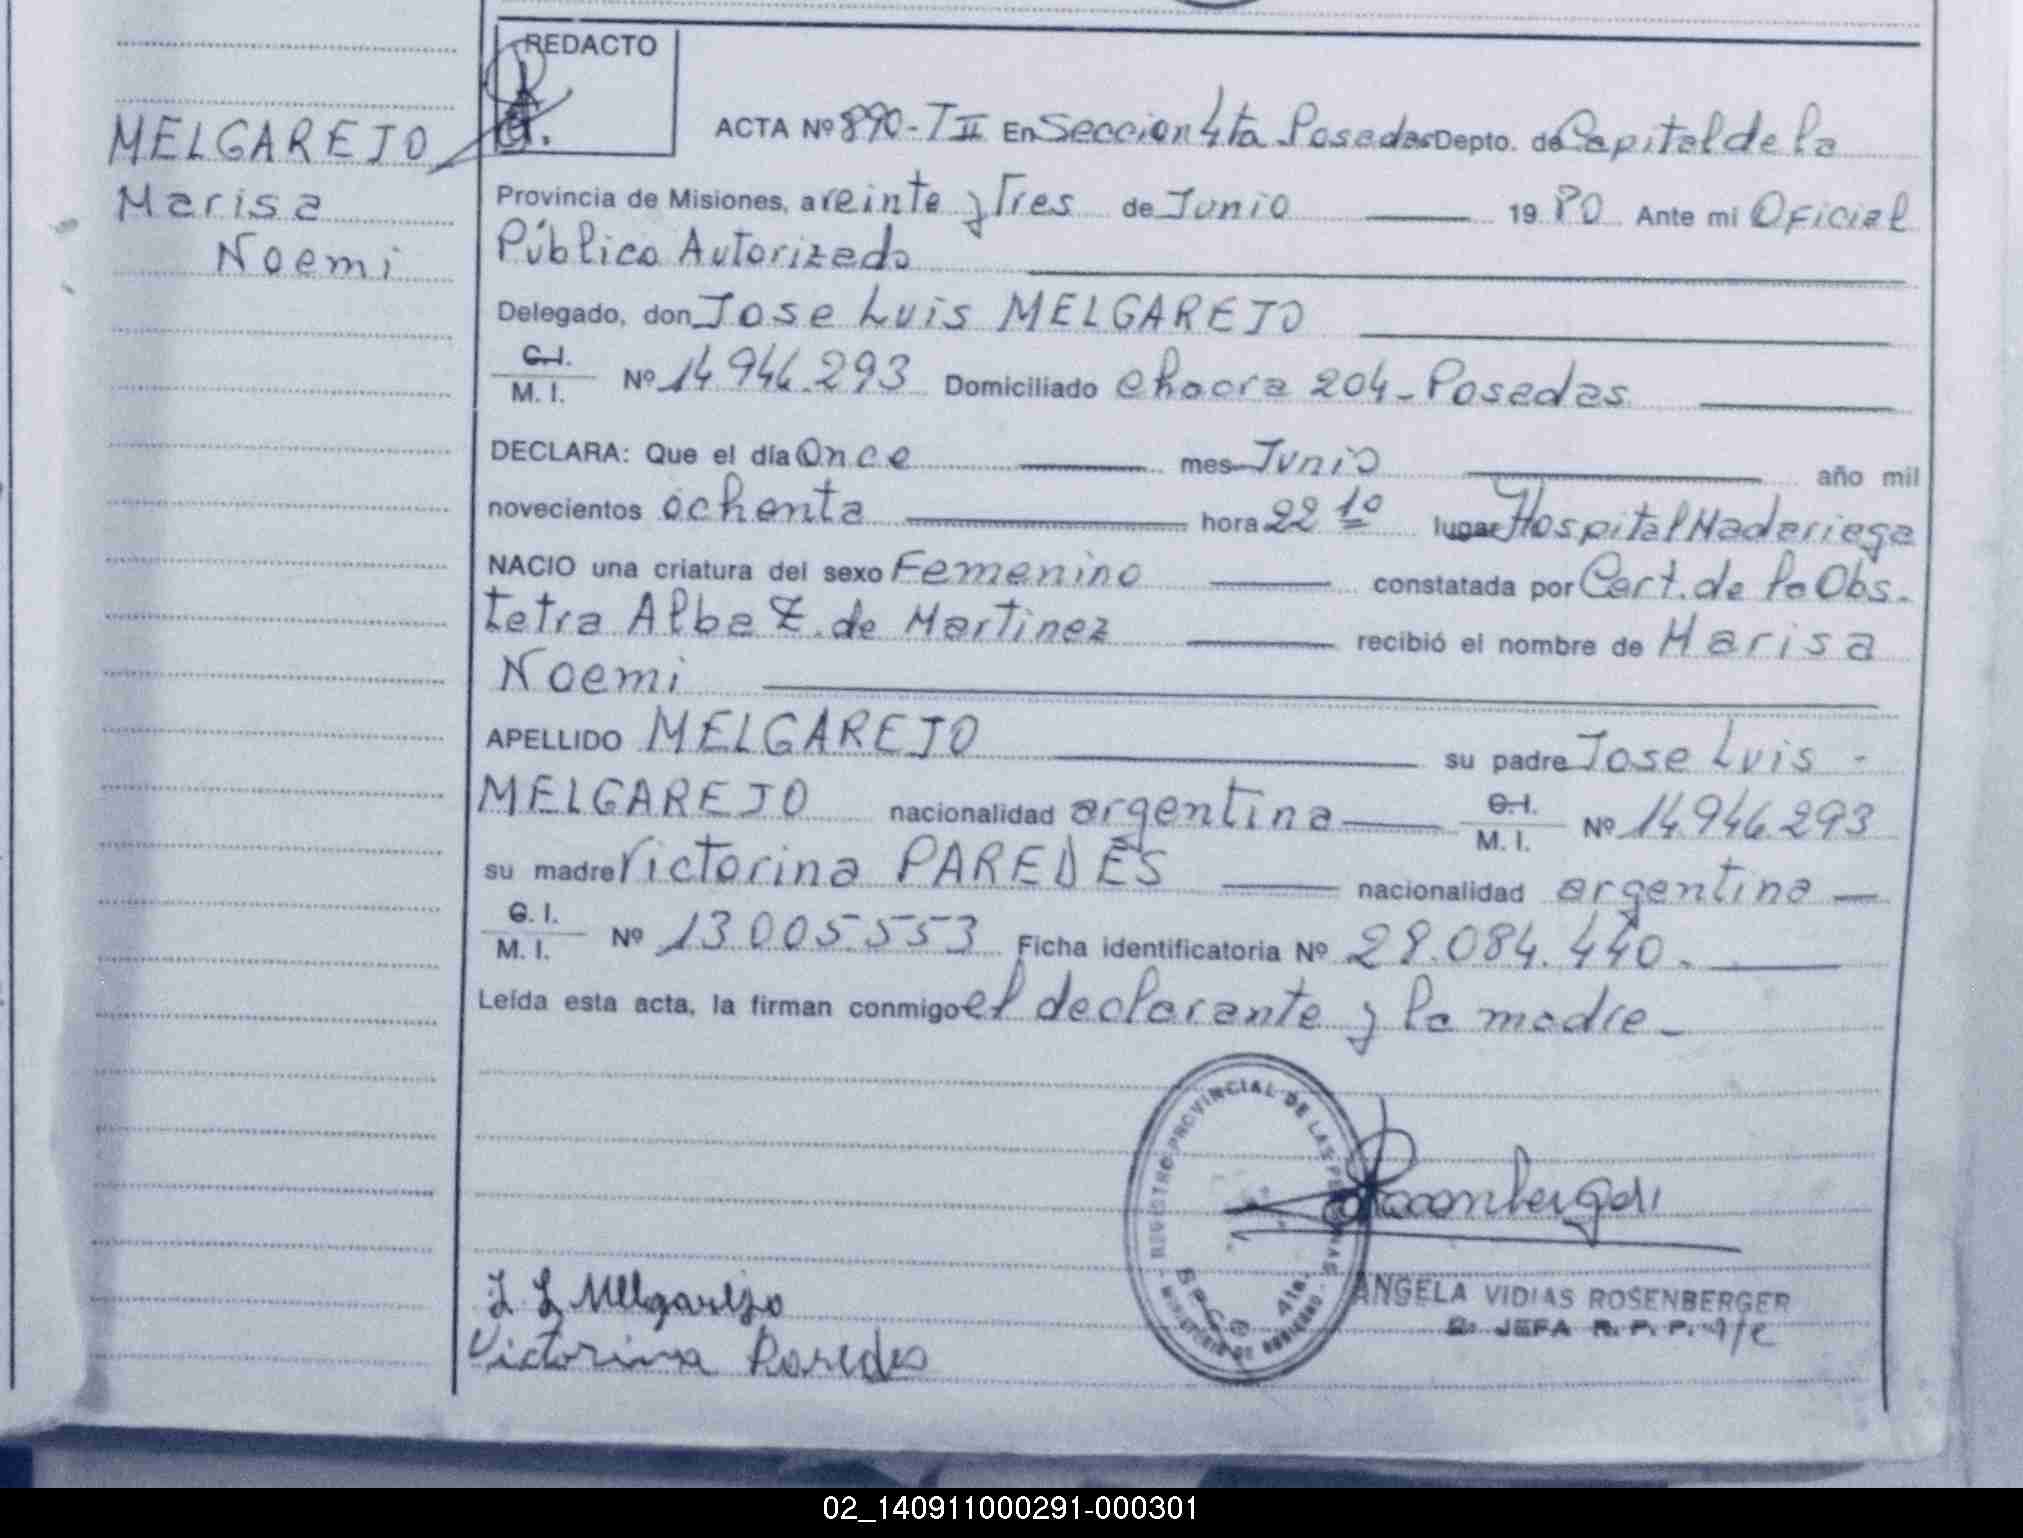 REDACTO
MELGAREJO
Marisa
Noemi
ACTA Nº 890-TII En Seccion 4ta Posadas Depto. de Capital de la
Provincia de Misiones, a veinte y Tres de Junio 19 80 Ante mi Oficial
Público Autorizado
Delegado, don Jose Luis MELGAREJO
C.I.
M. I. Nº 14.946.293 Domiciliado Chacra 204 - Posadas
DECLARA: Que el día Once mes Junio año mil
novecientos ochenta hora 22 10 lugar Hospital Madariaga
NACIO una criatura del sexo Femenino constatada por Cert. de la Obs.
tetra Alba Z. de Martinez recibió el nombre de Marisa
Noemi
APELLIDO MELGAREJO su padre Jose Luis -
MELGAREJO nacionalidad argentina C.I.
M. I. Nº 14.946.293
su madre Victorina PAREDES nacionalidad argentina
C. I.
M. I. Nº 13.005.553 Ficha identificatoria Nº 28.084.440.
Leída esta acta, la firman conmigo el declarante y la madre -
REGISTRO PROVINCIAL DE LAS PERSONAS
MINISTERIO DE GOBIERNO
4ta.
J L Melgarejo
Victorina Paredes
ANGELA VIDIAS ROSENBERGER
JEFA R. P. P.
02_140911000291-000301